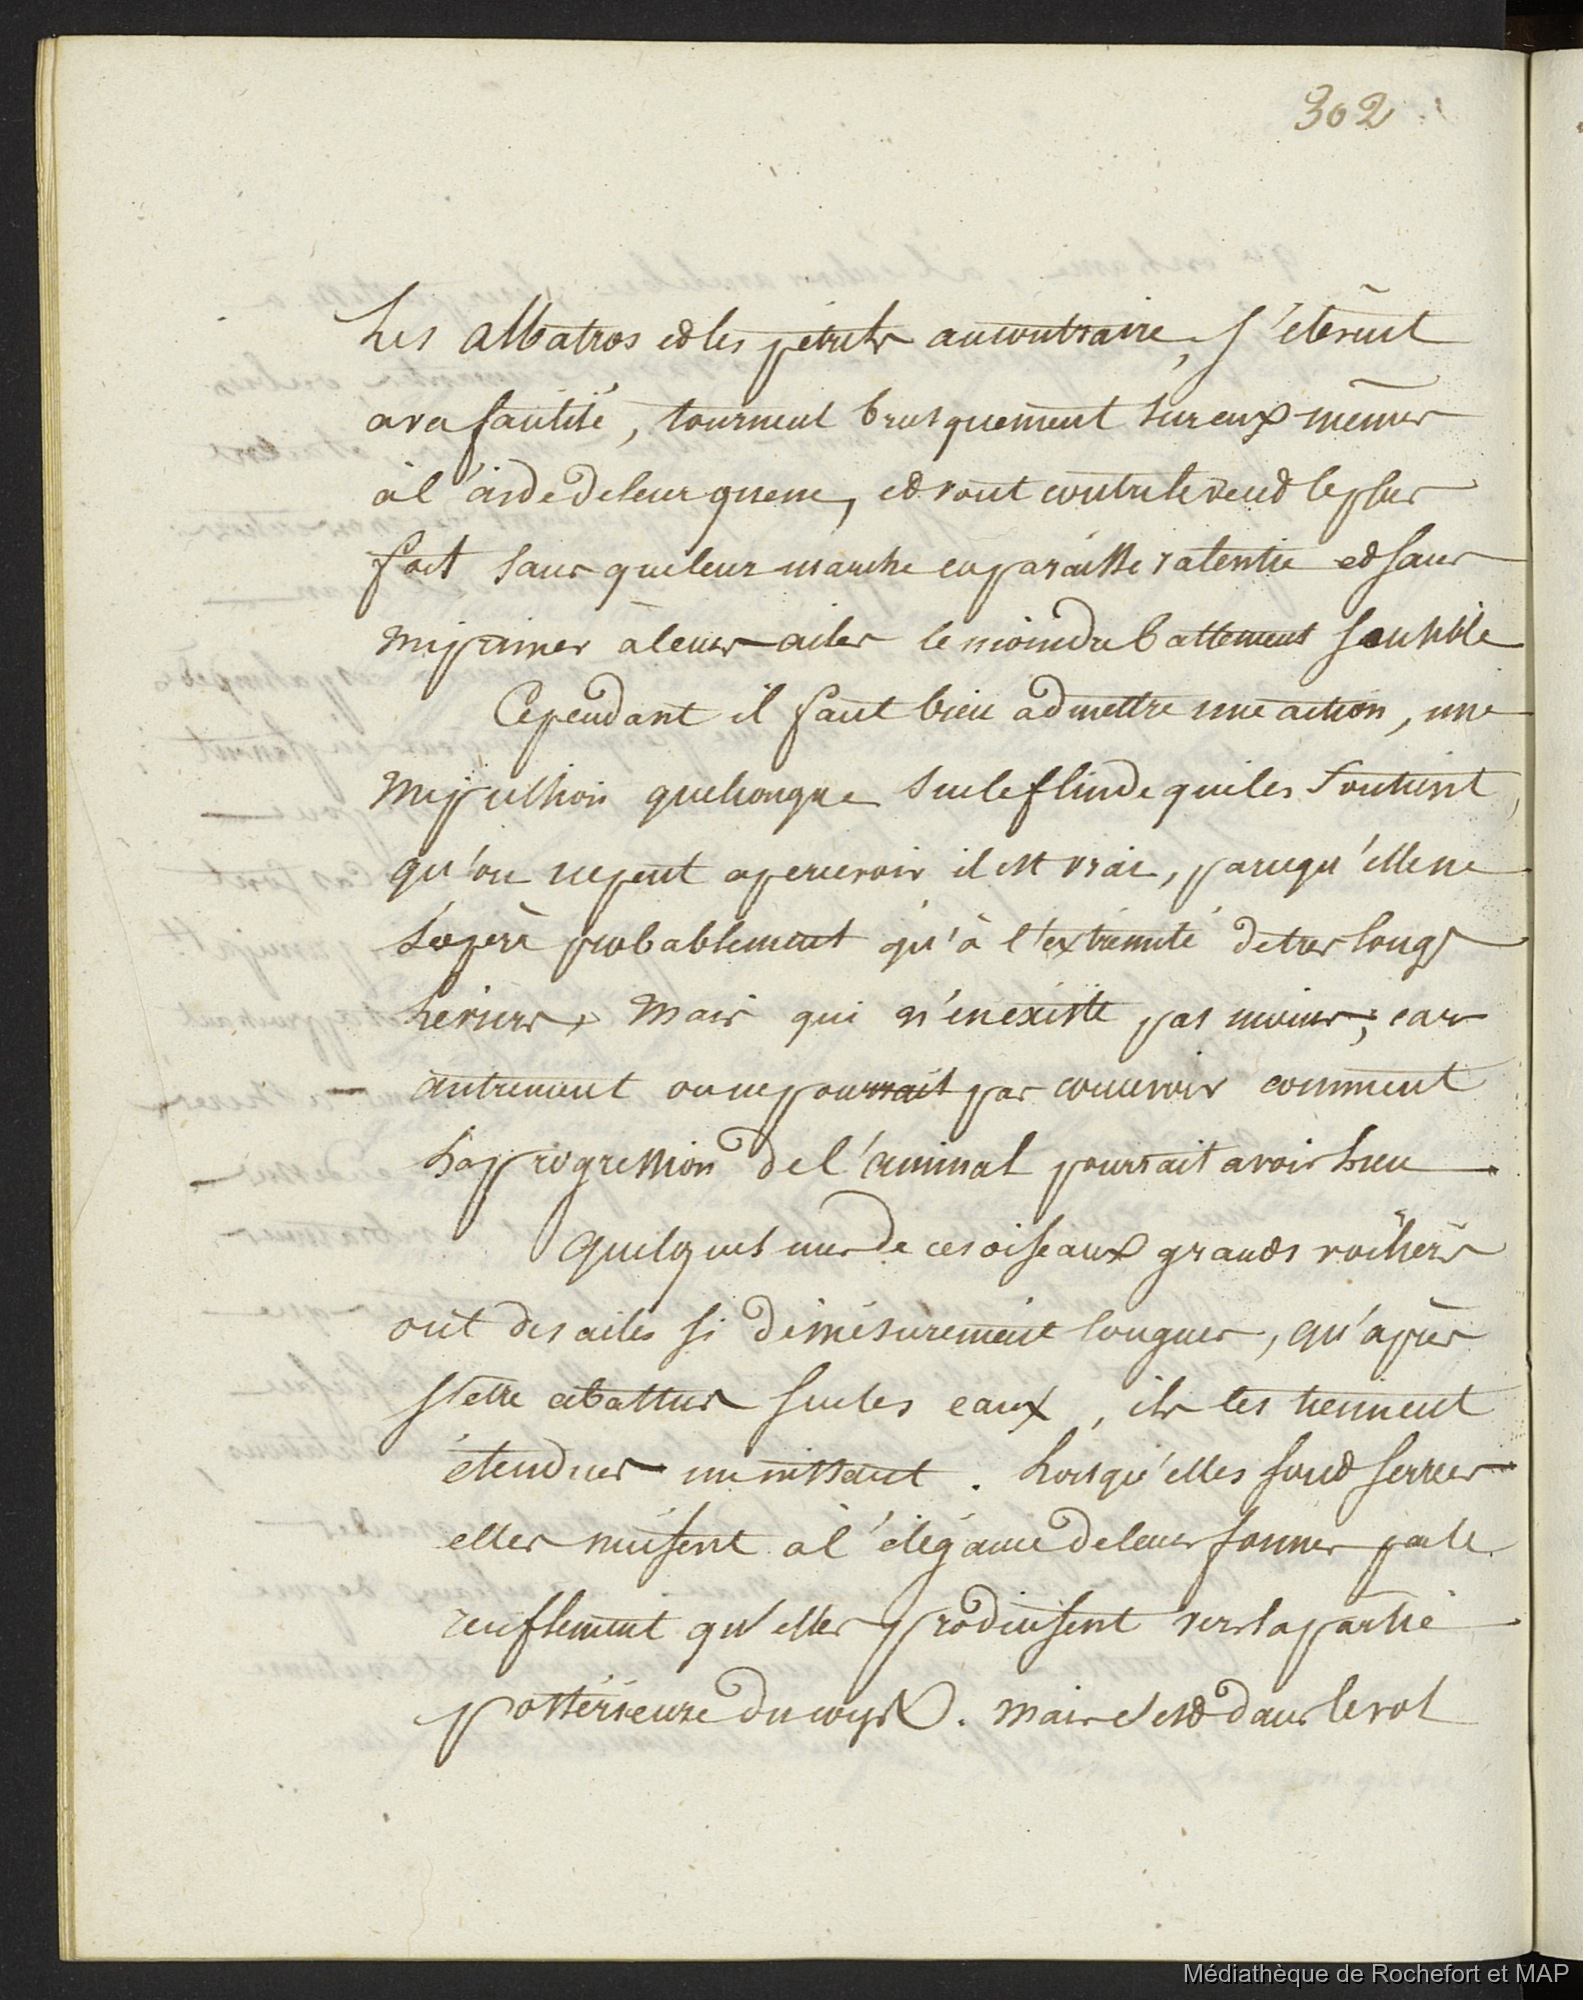 302
Les albatros et les pétrels au contraire, s'élèvent
avec facilité, tournent brusquement sur eux mêmes
à l'aide de leur queue, et vont contre le vend le plus
fort sans que leur marche en paraisse ralentie et sans
imprimer à leurs ailes le moindre battement sensible
Cependant il faut bien admettre une action, une
impulsion quelconque sur le fluide qui les soutient,
qu'on ne peut apercevoir il est vrai, parcequ'elle ne
s'opère probablement qu'à l'extrémité de très longs
leviers, mais qui n'en existe pas moins; car
autrement on ne pourrait pas concevoir comment
la progression de l'animal pourrait avoir lieu
Quelques uns de ces oiseaux grands voiliers
ont des ailes si démésurement longues, qu'après
s'etre abattus sur les eaux, ils les tiennent
étendues un instant. Lorsqu'elles sont serrées
elles nuisent à l'élégance de leurs formes par le
renflement qu'elles produisent vers la partie
postérieure du corps. Mais c'est dans le vol
Médiathèque de Rochefort et MAP